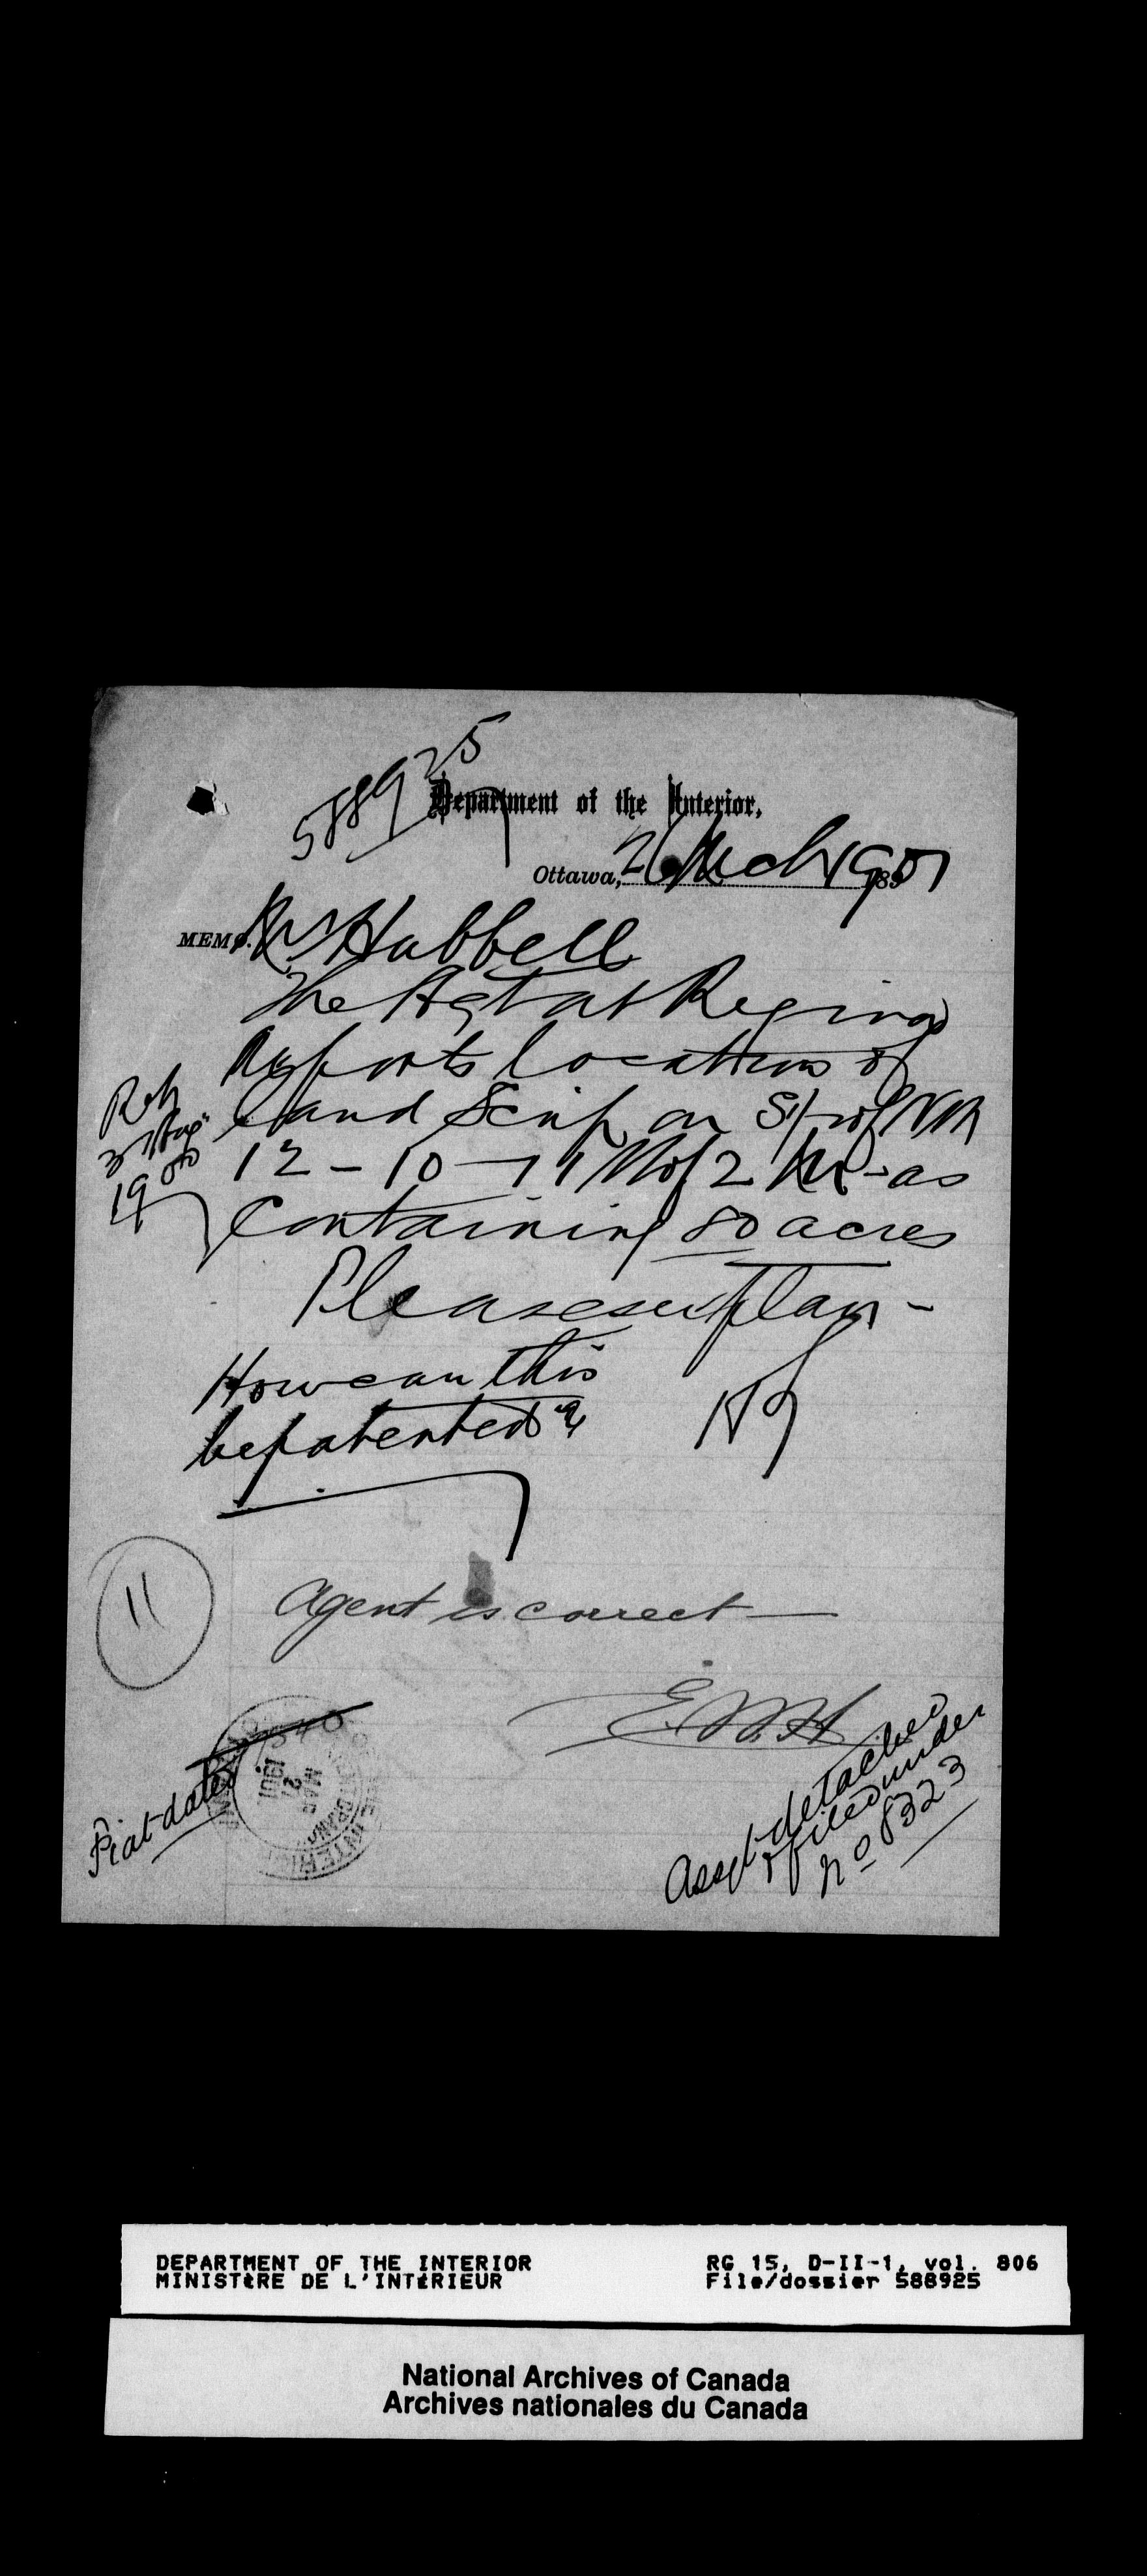 588925
Department of the Interior,
Ottawa, 26 Mch 1901
MEMO. Mr Hubbell
The Agt at Regina
Reports location of
land Scrip on S½ of NW
12 - 10 - 11 W of 2 M - as
Containing 80 acres
Please explain -
How can this
be patented?
Reb
3 Aug:
1900
11
Agent is correct —
E.W.H.
Piat dated
1340
MAR
21
1901
Assgt detached
& filed under
No 8323
DEPARTMENT OF THE INTERIOR
MINISTÈRE DE L'INTÉRIEUR
RG 15, D-II-1, vol. 806
File/dossier 588925
National Archives of Canada
Archives nationales du Canada